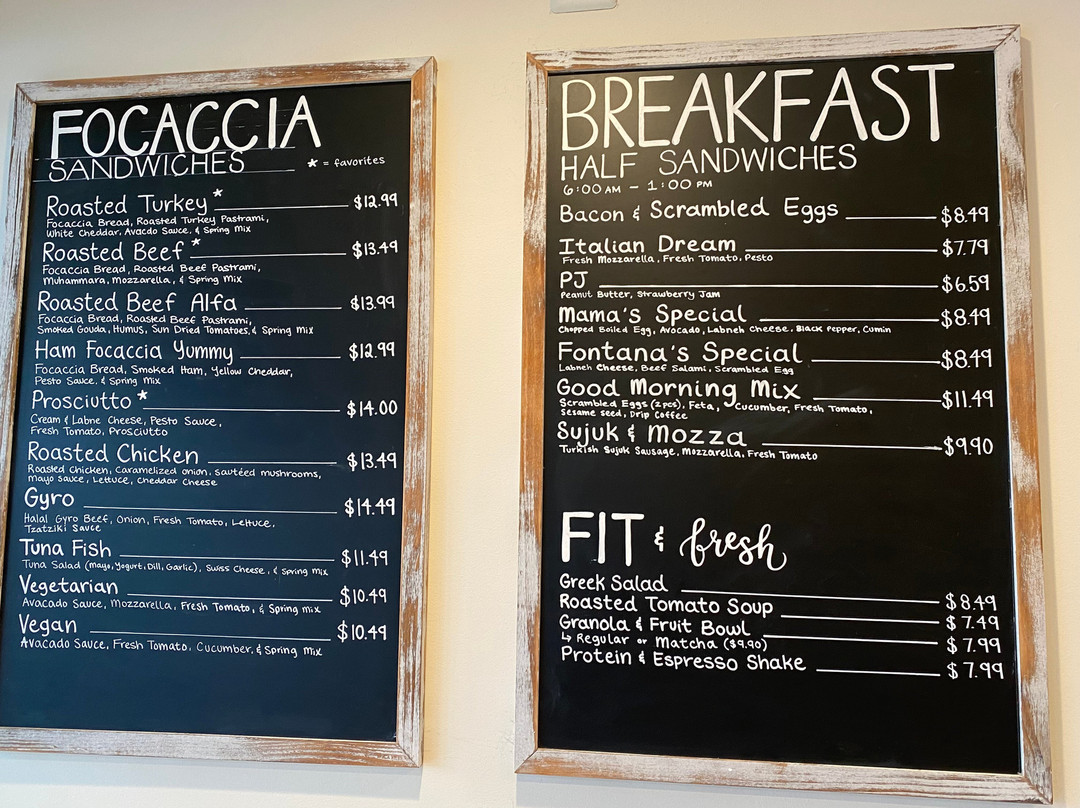 FOCACCIA
SANDWICHES * = favorites
Roasted Turkey * $12.99
Focaccia Bread, Roasted Turkey Pastrami,
White Cheddar, Avacdo Sauce, & Spring Mix
Roasted Beef * $13.49
Focaccia Bread, Roasted Beef Pastrami,
Muhammara, Mozzarella, & Spring Mix
Roasted Beef Alfa $13.99
Focaccia Bread, Roasted Beef Pastrami,
Smoked Gouda, Humus, Sun Dried Tomatoes, & Spring Mix
Ham Focaccia Yummy $12.99
Focaccia Bread, Smoked Ham, Yellow Cheddar,
Pesto Sauce, & Spring Mix
Prosciutto * $14.00
Cream & Labne Cheese, Pesto Sauce,
Fresh Tomato, Prosciutto
Roasted Chicken $13.49
Roasted Chicken, Caramelized onion, sautéed mushrooms,
mayo sauce, Lettuce, Cheddar Cheese
Gyro $14.49
Halal Gyro Beef, Onion, Fresh Tomato, Lettuce,
Tzatziki Sauce
Tuna Fish $11.49
Tuna Salad (mayo, Yogurt, Dill, Garlic), Swiss Cheese, & Spring Mix
Vegetarian $10.49
Avacado Sauce, Mozzarella, Fresh Tomato, & Spring mix
Vegan $10.49
Avacado Sauce, Fresh Tomato, Cucumber, & Spring Mix
BREAKFAST
HALF SANDWICHES
6:00 AM - 1:00 PM
Bacon & Scrambled Eggs $8.49
Italian Dream $7.79
Fresh Mozzarella, Fresh Tomato, Pesto
PJ $6.59
Peanut Butter, Strawberry Jam
Mama's Special $8.49
Chopped Boiled Egg, Avocado, Labneh Cheese, Black Pepper, Cumin
Fontana's Special $8.49
Labneh Cheese, Beef Salami, Scrambled Egg
Good Morning Mix $11.49
Scrambled Eggs (2 pcs), Feta, Cucumber, Fresh Tomato,
Sesame seed, Drip Coffee
Sujuk & Mozza $9.90
Turkish Sujuk Sausage, Mozzarella, Fresh Tomato
FIT & fresh
Greek Salad $8.49
Roasted Tomato Soup $7.49
Granola & Fruit Bowl $7.99
↳ Regular or Matcha ($9.90)
Protein & Espresso Shake $7.99